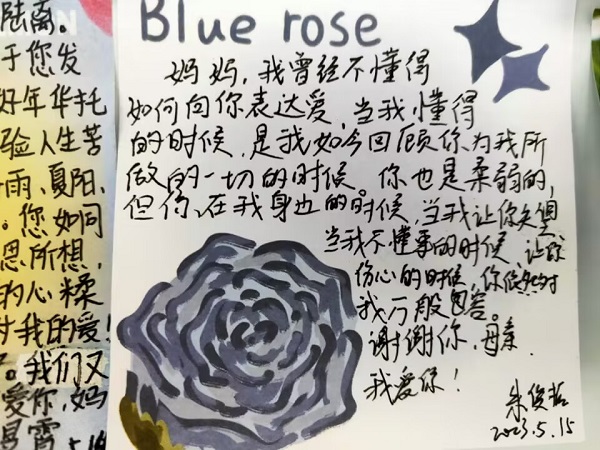 陆离。
于您发
好年华托
验人生苦
雨、夏阳、
。您如同
思所想,
的心糅
对我的爱!
。我们又
爱你,妈
5.14
Blue rose
妈妈,我曾经不懂得
如何向你表达爱,当我懂得
的时候,是我如今回顾你为我所
做的一切的时候。你也是柔弱的,
但你在我身边的时候,当我让你失望、
当我不懂事的时候,让你
伤心的时候,你依然对
我万般包容。
谢谢你,母亲.
我爱你!
朱俊哲
2023.5.15